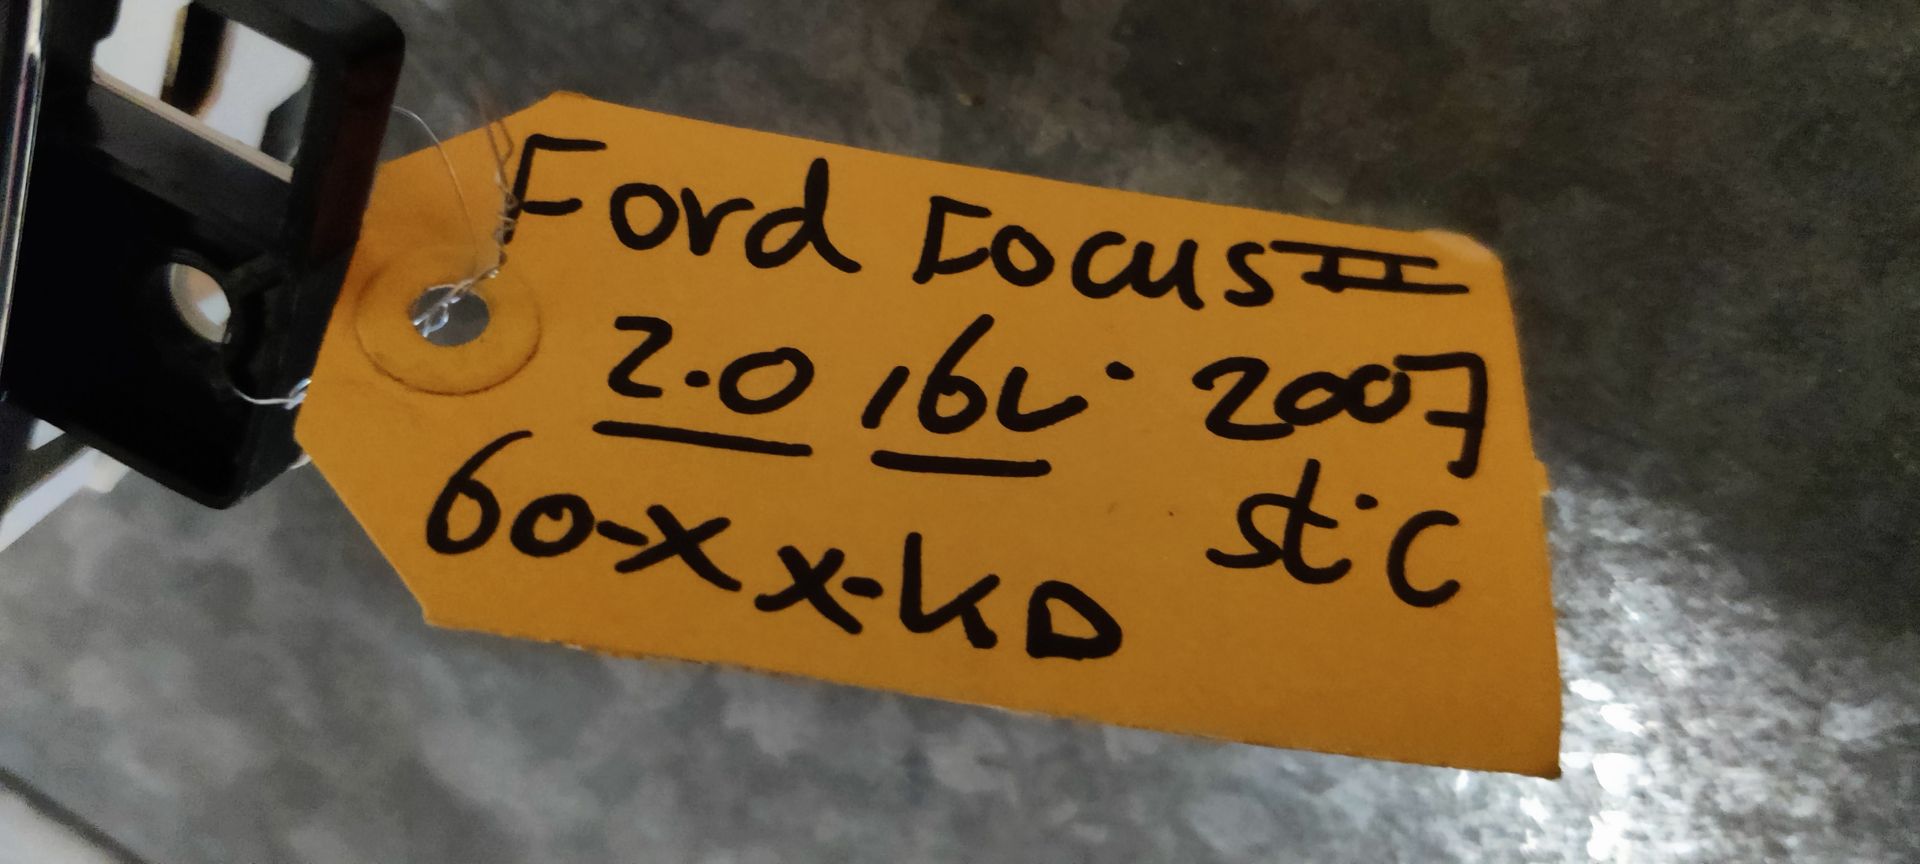 Ford Focus II
2.0 16V. 2007
60-XX-KD st.C